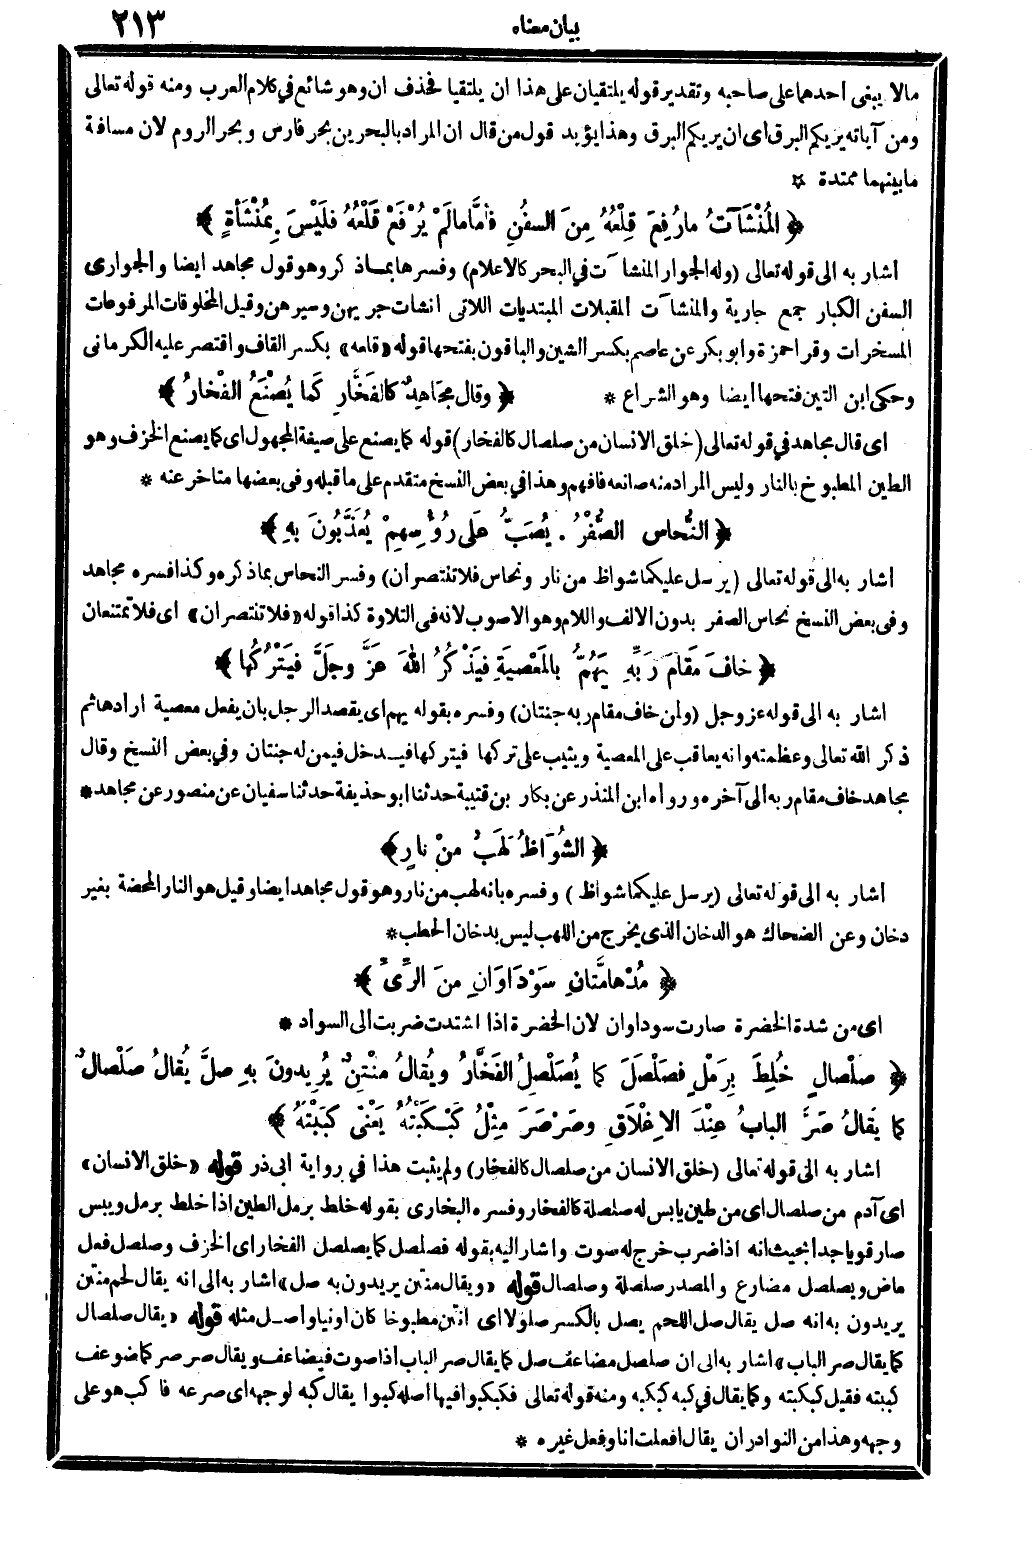 بيان معناه ٢١٣
مالا يبغى احدهما على صاحبه وتقدير قوله يلتقيان على هذا ان يلتقيا فحذف ان وهو شائع في كلام العرب ومنه قوله تعالى
ومن آياته يريكم البرق اى ان يريكم البرق وهذا يؤيد قول من قال ان المراد بالبحرين بحر فارس وبحر الروم لان مسافة
ما بينهما ممتدة *
﴿ المُنْشَآتُ مارُفِعَ قِلْعُهُ مِنَ السفُنِ فأمَّا مالَمْ يُرْفَعْ قَلْعُهُ فلَيْسَ بِمُنْشَأةٍ ﴾
أشار به الى قوله تعالى (وله الجوار المنشآت في البحر كالاعلام) وفسرها بما ذكر وهو قول مجاهد ايضا والجوارى
السفن الكبار جمع جارية والمنشآت المقبلات المبتديات اللاتى انشات جريهن وسيرهن وقيل المخلوقات المرفوعات
المسخرات وقرا حمزة وابو بكر عن عاصم بكسر الشين والباقون بفتحها قوله «قلعه» بكسر القاف واقتصر عليه الكرمانى
وحكى ابن التين فتحها ايضا وهو الشراع * ﴿ وقال مجَاهِدٌ كالفَخَّارِ كَما يُصْنَعُ الفْخارُ ﴾
اى قال مجاهد في قوله تعالى (خلق الانسان من صلصال كالفخار) قوله كما يصنع على صيغة المجهول اى كما يصنع الخزف وهو
الطين المطبوخ بالنار وليس المراد منه صانعه فافهم وهذا في بعض النسخ متقدم على ما قبله وفى بعضها متاخر عنه *
﴿ النُّحاس الصُّفْرُ . يُصَبُّ عَلَى رُؤُسِهِمْ يُعَذَّبُونَ بهِ ﴾
اشار به الى قوله تعالى (يرسل عليكما شواظ من نار ونحاس فلا تنتصران) وفسر النحاس بما ذكره وكذا فسره مجاهد
وفى بعض النسخ نحاس الصفر بدون الالف واللام وهو الاصوب لانه في التلاوة كذا قوله «فلا تنتصران» اى فلا تمتنعان
﴿ خافَ مَقامَ رَبِّهِ يَهُمُّ بالمَعْصِيَةِ فيَذْكُرُ اللهَ عَزَّ وجلَّ فيَتْرُكُها ﴾
اشار به الى قوله عز وجل (ولمن خاف مقام ربه جنتان) وفسره بقوله يهم اى يقصد الرجل بان يفعل معصية ارادها ثم
ذكر الله تعالى وعظمته وانه يعاقب على المعصية ويثيب على تركها فيتركها فيدخل فيمن له جنتان وفي بعض النسخ وقال
مجاهد خاف مقام ربه الى آخره ورواه ابن المنذر عن بكار بن قتيبة حدثنا ابو حذيفة حدثنا سفيان عن منصور عن مجاهد *
﴿ الشُّوَاظُ لَهَبٌ مِنْ نارٍ ﴾
اشار به الى قوله تعالى (يرسل عليكما شواظ) وفسره بانه لهب من نار وهو قول مجاهد ايضا وقيل هو النار المحضة بغير
دخان وعن الضحاك هو الدخان الذى يخرج من اللهب ليس بدخان الحطب *
﴿ مُدْهامَّتانِ سَوْدَاوَانِ مِنَ الرِّىِّ ﴾
اى من شدة الخضرة صارت سوداوان لان الخضرة اذا اشتدت ضربت الى السواد *
﴿ صَلْصالٍ خُلِطَ بِرَمْلٍ فصَلْصَلَ كما يُصَلْصِلُ الفَخَّارُ ويُقالُ مُنْتِنٌ يُرِيدونَ بهِ صلَّ يُقالُ صَلْصالٌ
كما يقالُ صَرَّ البابُ عِنْدَ الإِغْلَاقِ وصَرْصَرَ مِثْلُ كَبْكَبْتُهُ يَعْنى كَبَبْتُهُ ﴾
اشار به الى قوله تعالى (خلق الانسان من صلصال كالفخار) ولم يثبت هذا في رواية ابى ذر قوله «خلق الانسان»
اى آدم من صلصال اى من طين يابس له صلصلة كالفخار وفسره البخارى بقوله خلط برمل الطين اذا خلط برمل ويبس
صار قويا جدا بحيث انه اذا ضرب خرج له صوت واشار اليه بقوله فصلصل كما يصلصل الفخار اى الخزف وصلصل فعل
ماض ويصلصل مضارع والمصدر صلصلة وصلصال قوله «ويقال منتن يريدون به صل» اشار به الى انه يقال لحم منتن
يريدون به انه صل يقال صل اللحم يصل بالكسر صلولا اى انتن مطبوخا كان اونيا واصل مثله قوله «يقال صلصال
كما يقال صر الباب» اشار به الى ان صلصل مضاعف صل كما يقال صر الباب اذا صوت فيضاعف ويقال صرصر كما ضوعف
كببته فقيل كبكبته وكما يقال في كبه كبكبه ومنه قوله تعالى فكبكبوا فيها اصله كبوا يقال كبه لوجهه اى صرعه فاكب هو على
وجهه وهذا من النوادر ان يقال افعلت انا وفعل غيره *